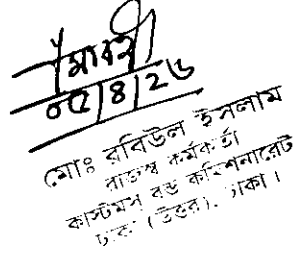 ০৫/৪/২৬
মোঃ রবিউল ইসলাম
রাজস্ব কর্মকর্তা
কাস্টমস বন্ড কমিশনারেট
ঢাকা (উত্তর), ঢাকা।